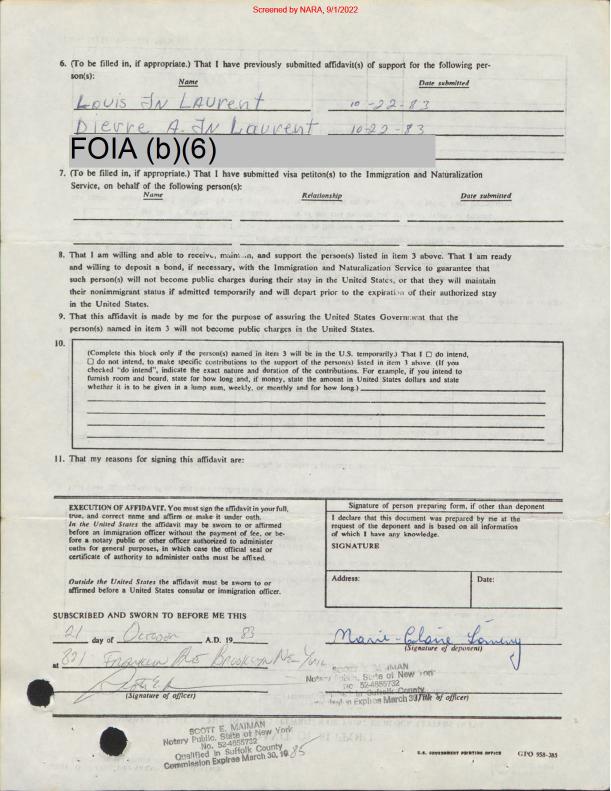 Screened by NARA, 9/1/2022
6. (To be filled in, if appropriate.) That I have previously submitted affidavit(s) of support for the following per-
son(s):
Name Date submitted
Louis JN Laurent 10-22-83
Pierre A. JN Laurent 10-22-83
FOIA (b)(6)
7. (To be filled in, if appropriate.) That I have submitted visa petiton(s) to the Immigration and Naturalization
Service, on behalf of the following person(s):
Name Relationship Date submitted
8. That I am willing and able to receive, maintain, and support the person(s) listed in item 3 above. That I am ready
and willing to deposit a bond, if necessary, with the Immigration and Naturalization Service to guarantee that
such person(s) will not become public charges during their stay in the United States, or that they will maintain
their nonimmigrant status if admitted temporarily and will depart prior to the expiration of their authorized stay
in the United States.
9. That this affidavit is made by me for the purpose of assuring the United States Government that the
person(s) named in item 3 will not become public charges in the United States.
10.
(Complete this block only if the person(s) named in item 3 will be in the U.S. temporarily.) That I ☐ do intend,
☐ do not intend, to make specific contributions to the support of the person(s) listed in item 3 above. (If you
checked "do intend", indicate the exact nature and duration of the contributions. For example, if you intend to
furnish room and board, state for how long and, if money, state the amount in United States dollars and state
whether it is to be given in a lump sum, weekly, or monthly and for how long.)
11. That my reasons for signing this affidavit are:
EXECUTION OF AFFIDAVIT. You must sign the affidavit in your full,
true, and correct name and affirm or make it under oath.
In the United States the affidavit may be sworn to or affirmed
before an immigration officer without the payment of fee, or be-
fore a notary public or other officer authorized to administer
oaths for general purposes, in which case the official seal or
certificate of authority to administer oaths must be affixed.
Outside the United States the affidavit must be sworn to or
affirmed before a United States consular or immigration officer.
Signature of person preparing form, if other than deponent
I declare that this document was prepared by me at the
request of the deponent and is based on all information
of which I have any knowledge.
SIGNATURE
Address: Date:
SUBSCRIBED AND SWORN TO BEFORE ME THIS
21 day of October A.D. 19 83
Marie-Claire
(Signature of deponent)
at 821 Franklin Ave Brooklyn New York
(Signature of officer)
SCOTT E. MAIMAN
Notary Public, State of New York
No. 52-4655732
Qualified in Suffolk County
Commission Expires March 30, 19
(Title of officer)
SCOTT E. MAIMAN
Notary Public, State of New York
No. 52-4655732
Qualified in Suffolk County
Commission Expires March 30, 19 85
U.S. GOVERNMENT PRINTING OFFICE GPO 958-385